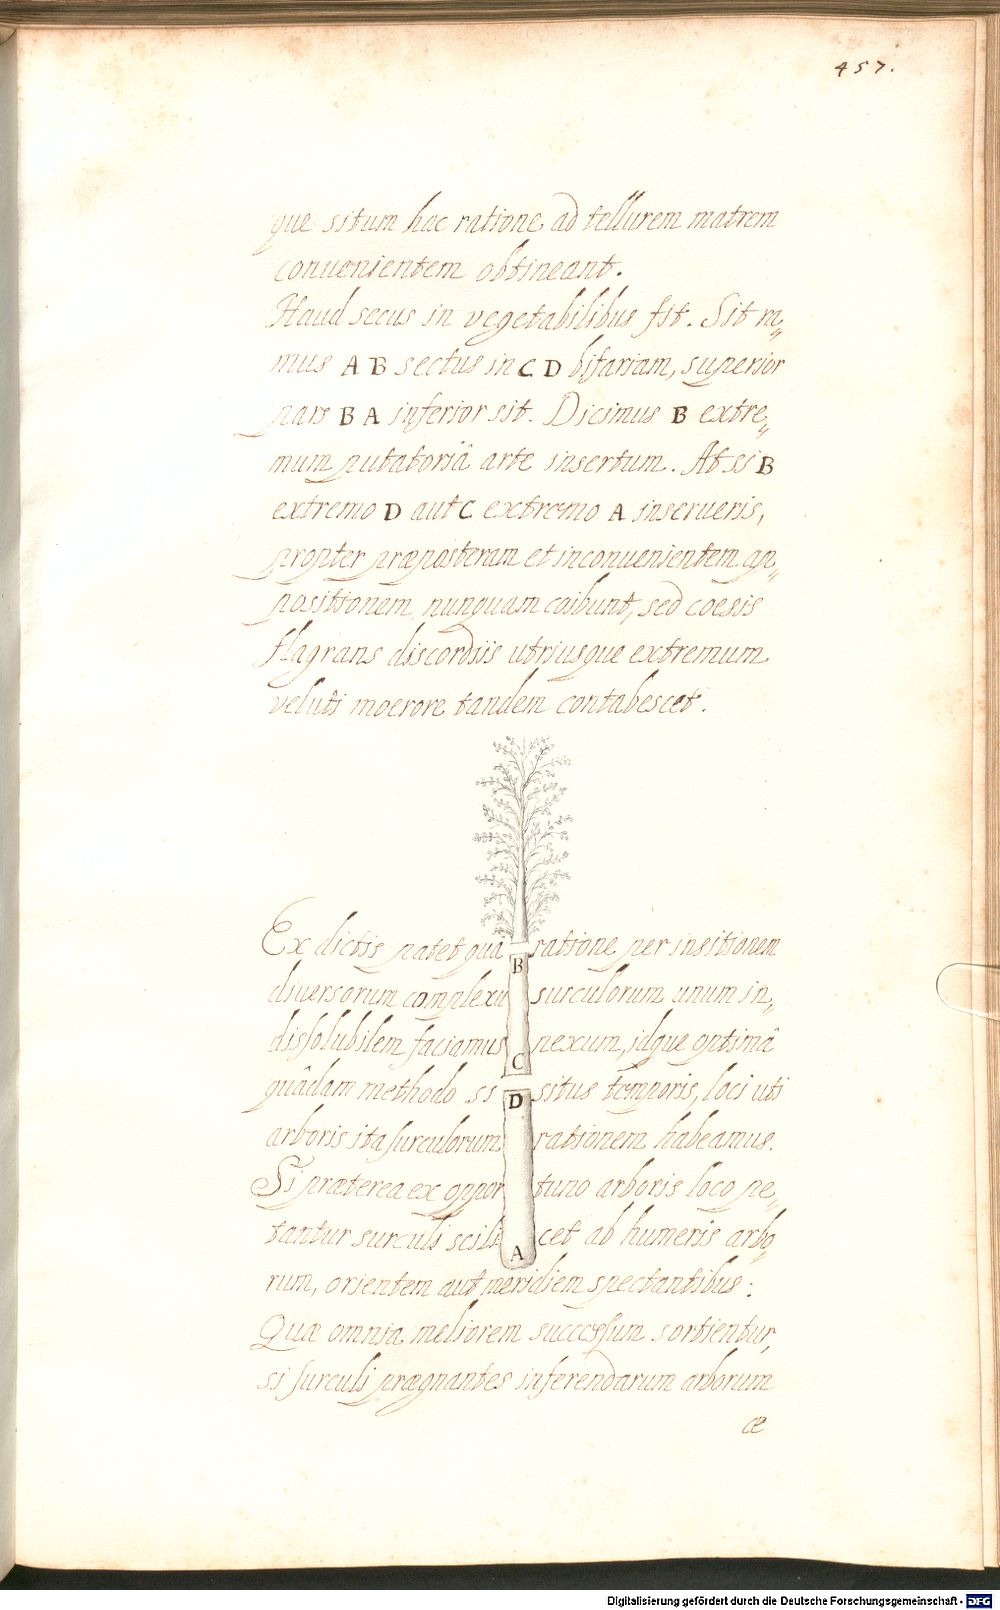 457.
que situm hac ratione ad tellurem matrem
convenientem obtineant.
Haud secus in vegetabilibus fit. Sit ra„
mus A B sectus in C D bifariam, superior
pars B A inferior sit. Dicimus B extre„
mum putatoriâ arte insertum. At si B
extremo D aut C extremo A inserueris,
propter præposteram et inconuenientem ap„
positionem nunquam coibunt, sed coesis
flagrans discordiis utriusque extremum
veluti moerore tandem contabescet.
Ex dictis patet quâ ratione per insitionem
diversorum complexu surculorum unum in„
dissolubilem faciamus nexum, idque optimâ
quâdam methodo si situs temporis, loci uti
arboris ita surculorum rationem habeamus.
Si præterea ex oppor tuno arboris loco pe„
tantur surculi scili cet ab humeris arbo„
rum, orientem aut meridiem spectantibus:
Quæ omnia meliorem successum sortientur,
si surculi prægnantes inferendarum arborum
æ
B
C
D
A
Digitalisierung gefördert durch die Deutsche Forschungsgemeinschaft - DFG